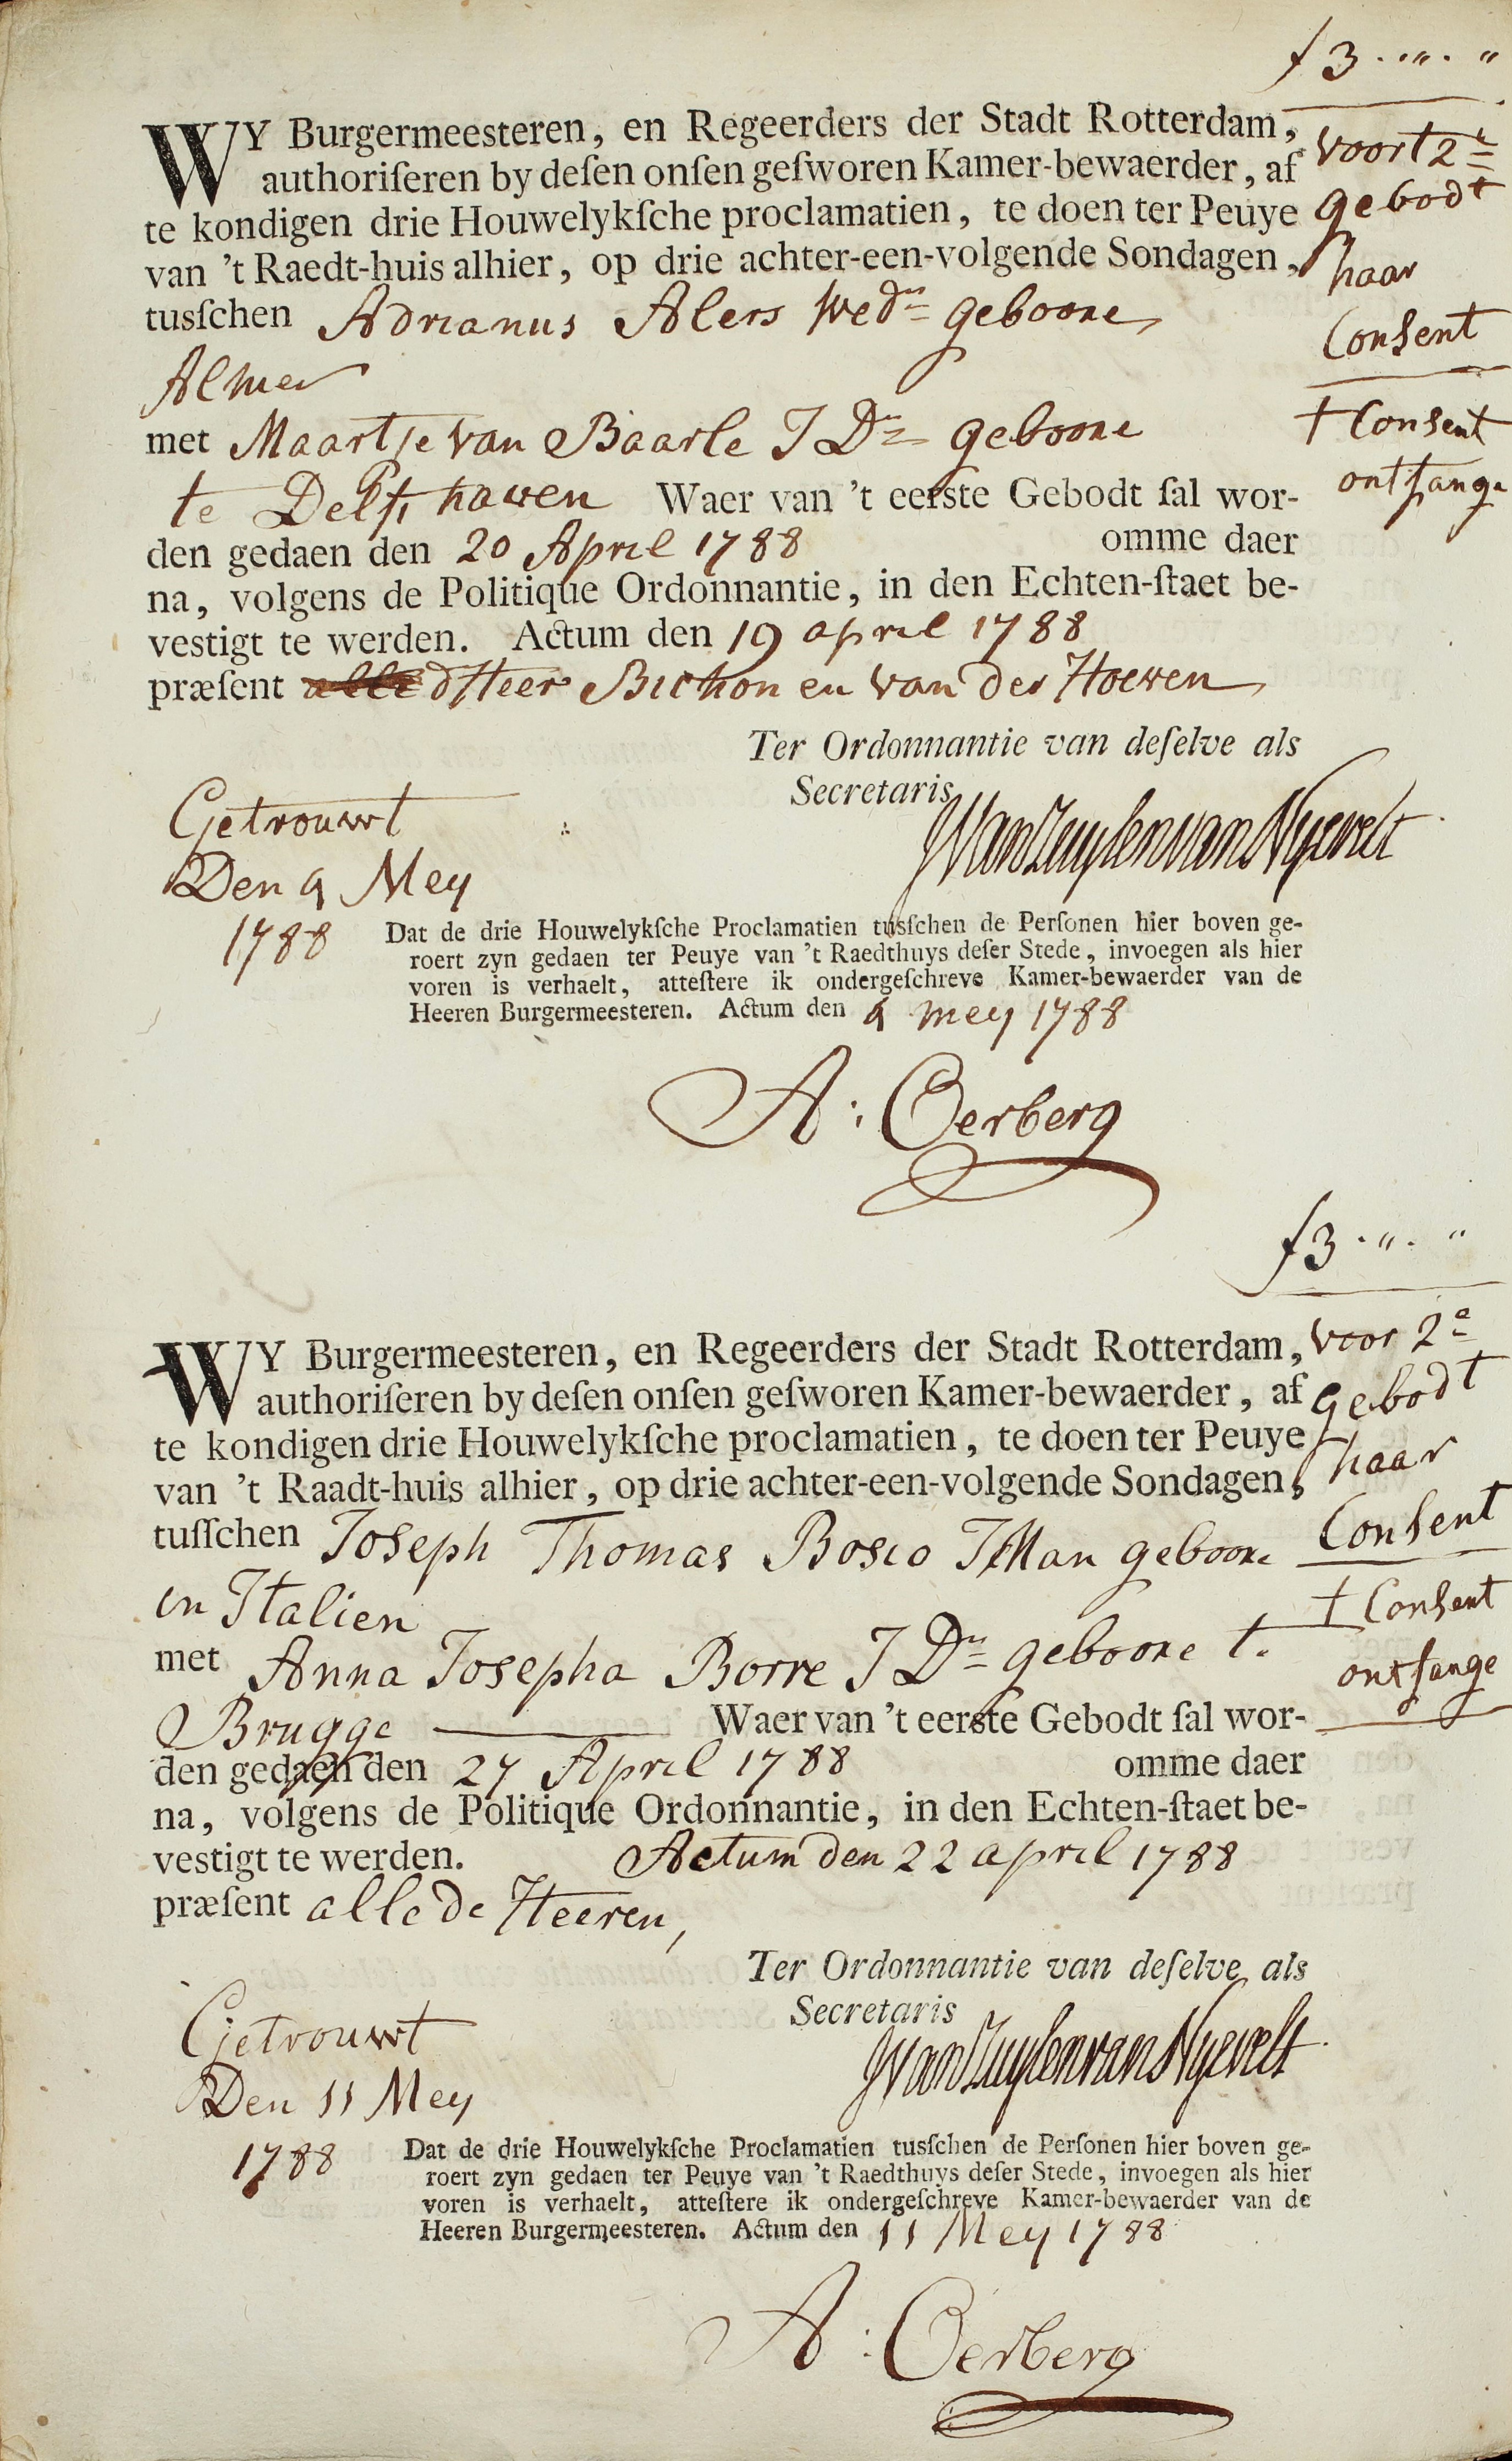 f 3 . „ . „
WY Burgermeesteren, en Regeerders der Stadt Rotterdam,
authoriſeren by deſen onſen geſworen Kamer-bewaerder, af
te kondigen drie Houwelykſche proclamatien, te doen ter Peuye
van 't Raedt-huis alhier, op drie achter-een-volgende Sondagen,
tusſchen Adrianus Alers Wedr geboore
Almer
met Maartje van Baarle J Dr geboore
te Delfthaven Waer van 't eerſte Gebodt ſal wor-
den gedaen den 20 April 1788 omme daer
na, volgens de Politique Ordonnantie, in den Echten-ſtaet be-
vestigt te werden. Actum den 19 april 1788
præſent alle d Heer Bichon en van der Hoeven
voort 2e
gebodt
haar
Consent
† Consent
ontfange
Ter Ordonnantie van deſelve als
Secretaris
JVanZuylenvanNyevelt
Getrouwt
Den 9 Mey
1788
Dat de drie Houwelykſche Proclamatien tusſchen de Perſonen hier boven ge-
roert zyn gedaen ter Peuye van 't Raedthuys deſer Stede, invoegen als hier
voren is verhaelt, atteſtere ik ondergeſchreve Kamer-bewaerder van de
Heeren Burgermeesteren. Actum den 9 mey 1788
A: Oerberg
f 3 . „ . „
WY Burgermeesteren, en Regeerders der Stadt Rotterdam,
authoriſeren by deſen onſen geſworen Kamer-bewaerder, af
te kondigen drie Houwelykſche proclamatien, te doen ter Peuye
van 't Raadt-huis alhier, op drie achter-een-volgende Sondagen,
tuſſchen Joseph Thomas Bosio JMan geboore
in Italien
met Anna Josepha Borre J Dr geboore te
Brugge Waer van 't eerſte Gebodt ſal wor-
den gedaen den 27 April 1788 omme daer
na, volgens de Politique Ordonnantie, in den Echten-ſtaet be-
vestigt te werden. Actum den 22 april 1788
præſent alle de Heeren,
voor 2e
gebodt
haar
Consent
† Consent
ontfange
Ter Ordonnantie van deſelve als
Secretaris
JVanZuylenvanNyevelt
Getrouwt
Den 11 Mey
1788
Dat de drie Houwelykſche Proclamatien tusſchen de Perſonen hier boven ge-
roert zyn gedaen ter Peuye van 't Raedthuys deſer Stede, invoegen als hier
voren is verhaelt, atteſtere ik ondergeſchreve Kamer-bewaerder van de
Heeren Burgermeesteren. Actum den 11 Mey 1788
A: Oerberg